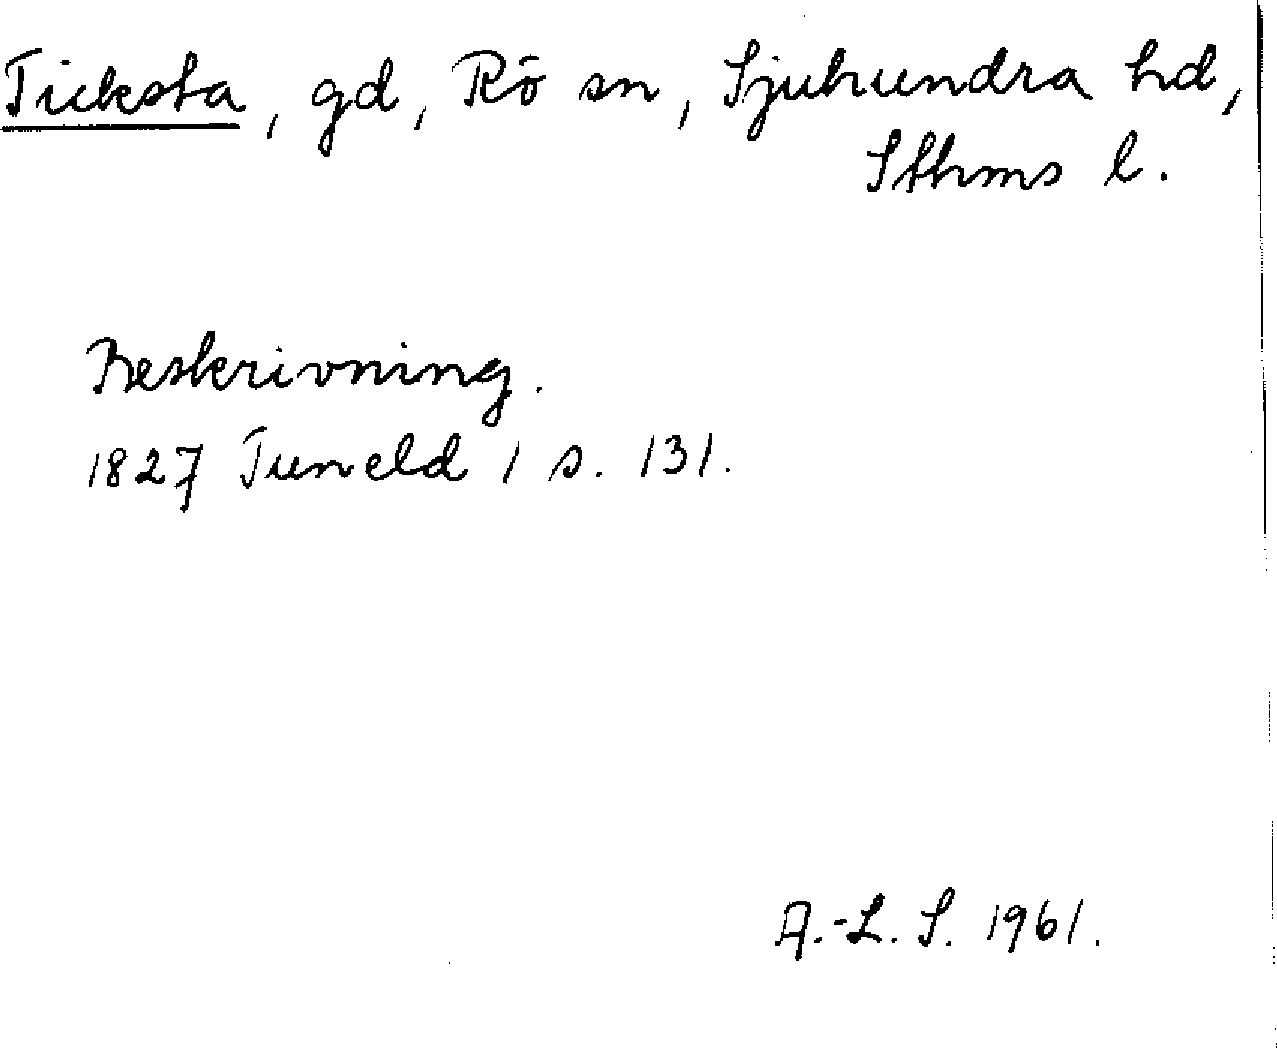 Ticksta, gd, Rö sn, Sjuhundra hd,
Sthms l.
Beskrivning.
1827 Tuneld 1 s. 131.
A.-L. S. 1961.